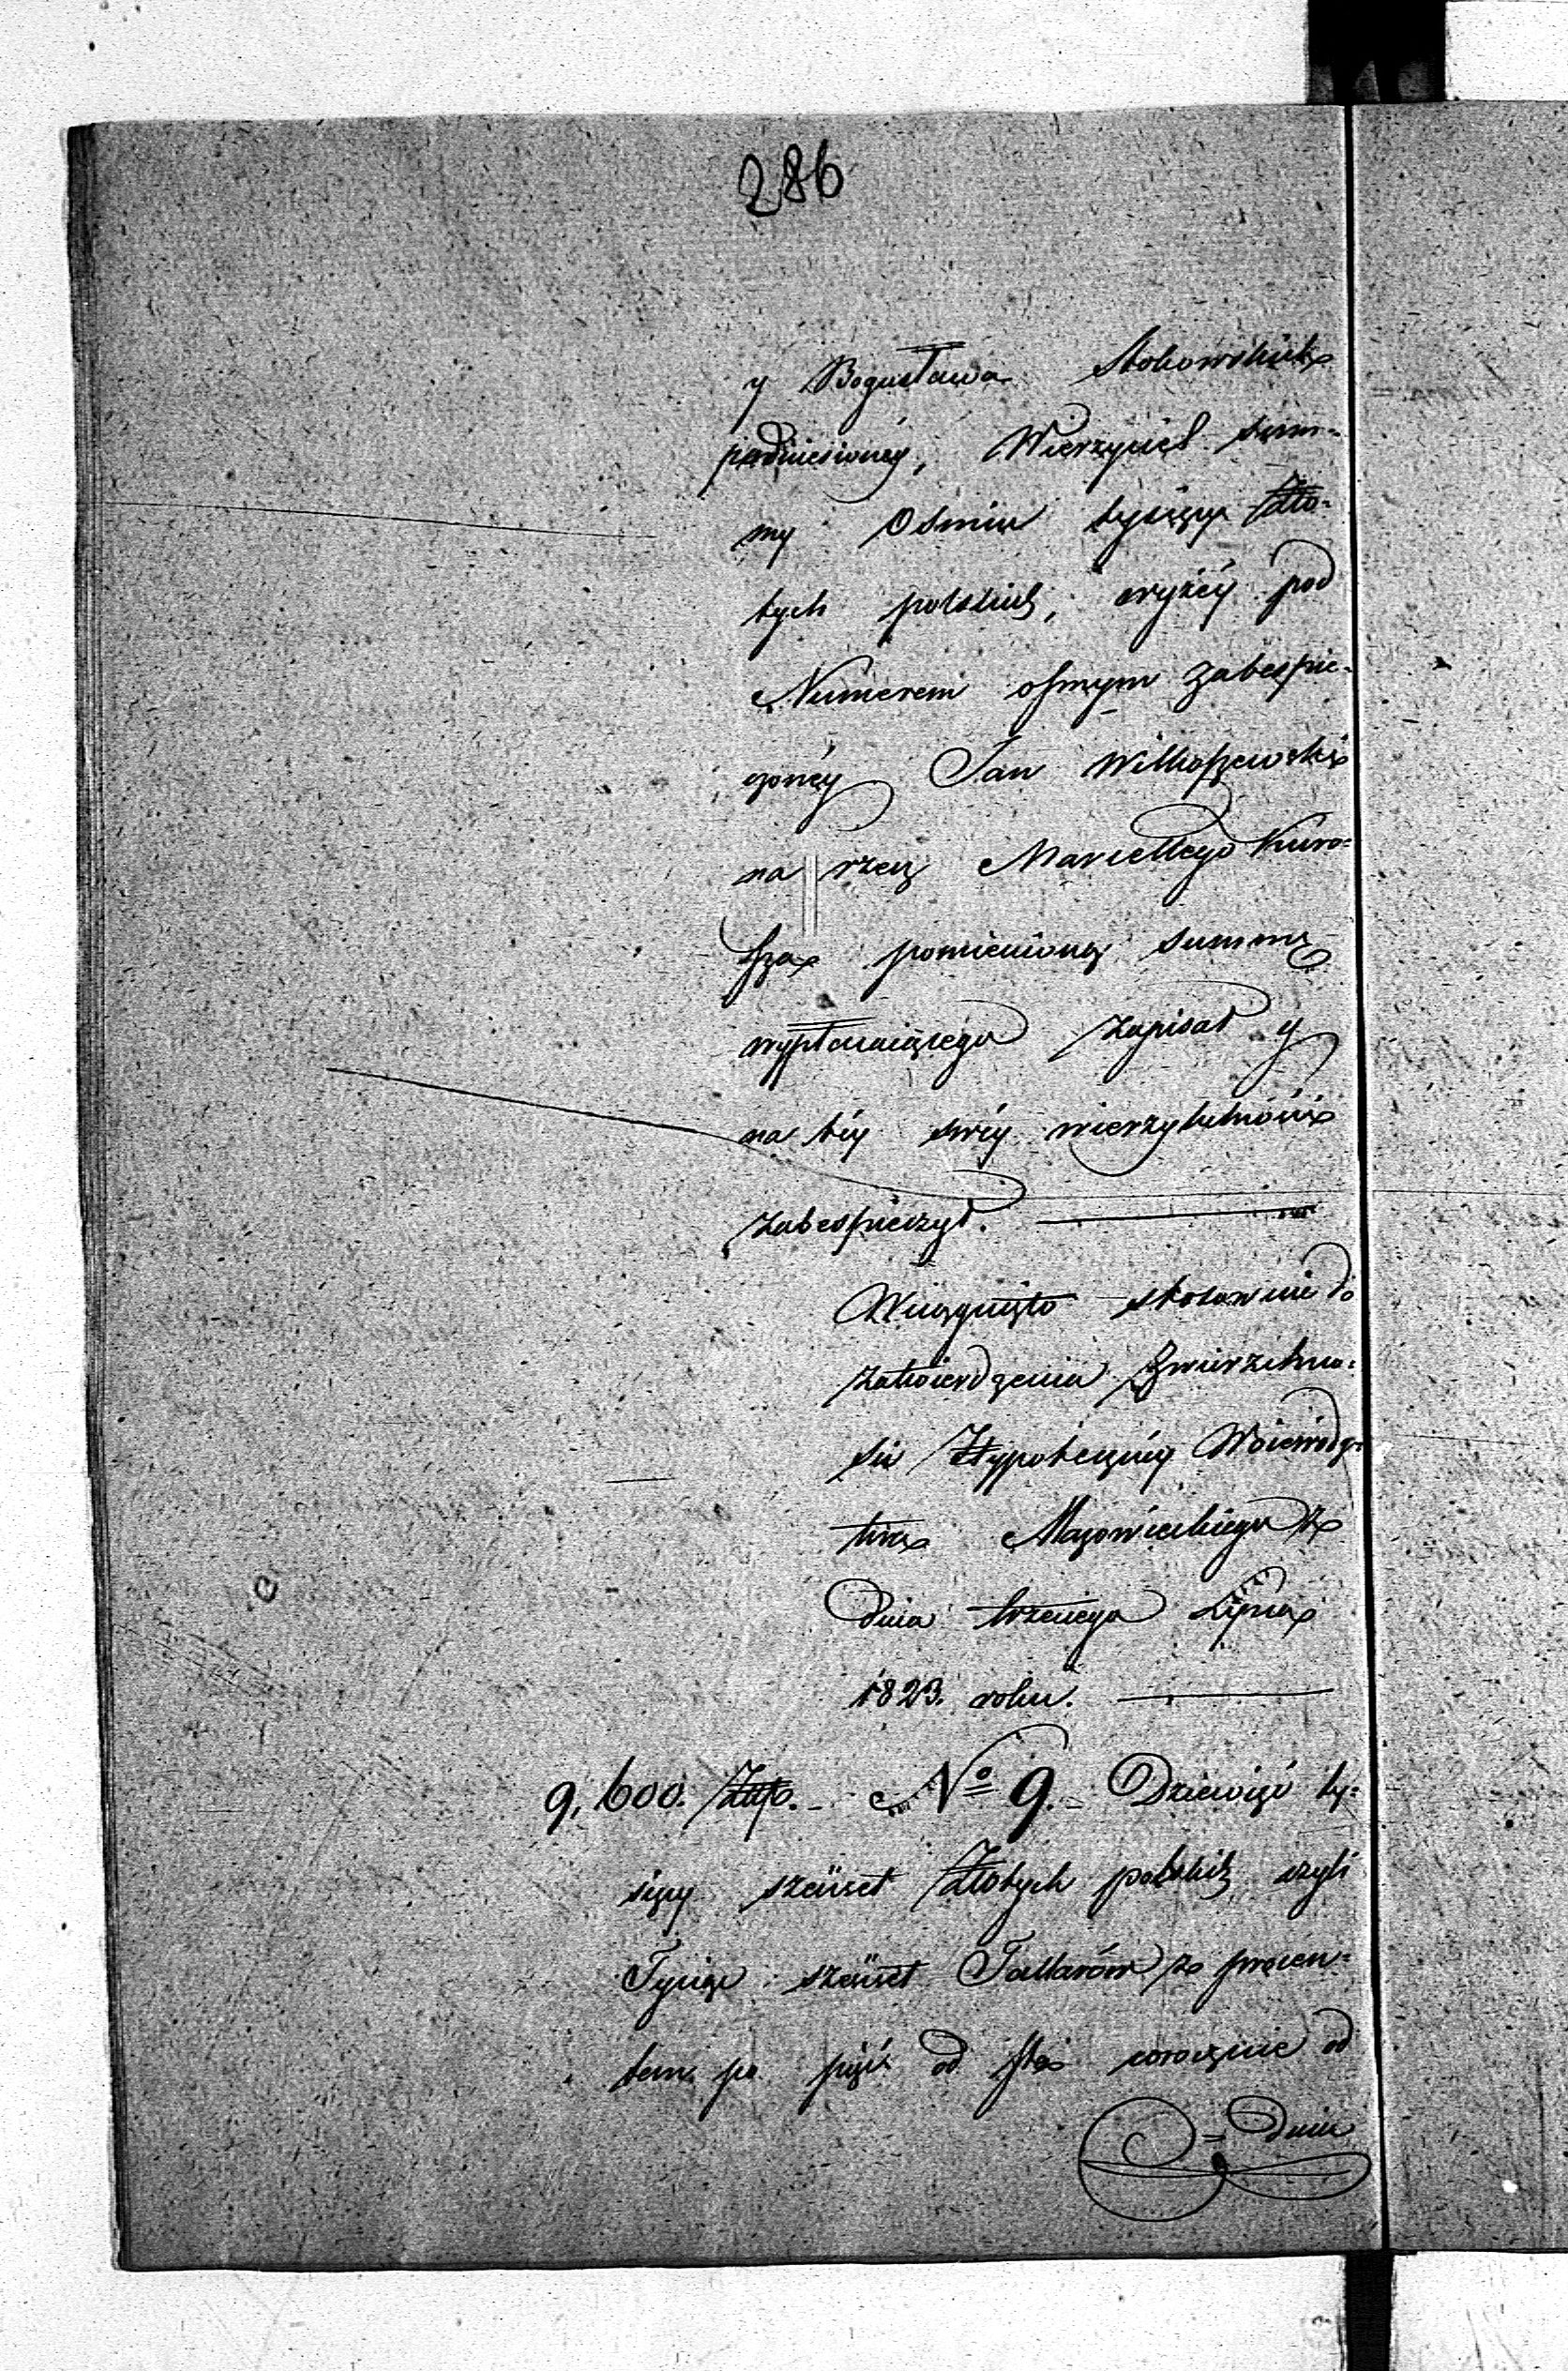 286
y Bogusława Stokowskich
podniesioney, Wierzyciel Sum=
my Osmiu tysięcy Zło=
tych polskich, wyżéy pod
Numerem osmym zabespie=
czonéy Jan Wilkoszewski
na rzecz Marcellego Kuro=
sza pomienioną summę
wypłacaiącego zapisał y
na téy swéy wierzytelności
zabespieczył.
Wciągnięto stosownie do
zatwierdzenia Zwierzchno=
ści Hypoteczney Woiewódz=
twa Mazowieckiego z
dnia trzeciego Lipca
1823. roku.
9,600. Złtp. No 9. Dziewięć ty=
sięcy szećset Złotych polskich czyli
Tysiąc szećset Tallarów z procen=
tem po pięć od sta corocznie od
= Dnia